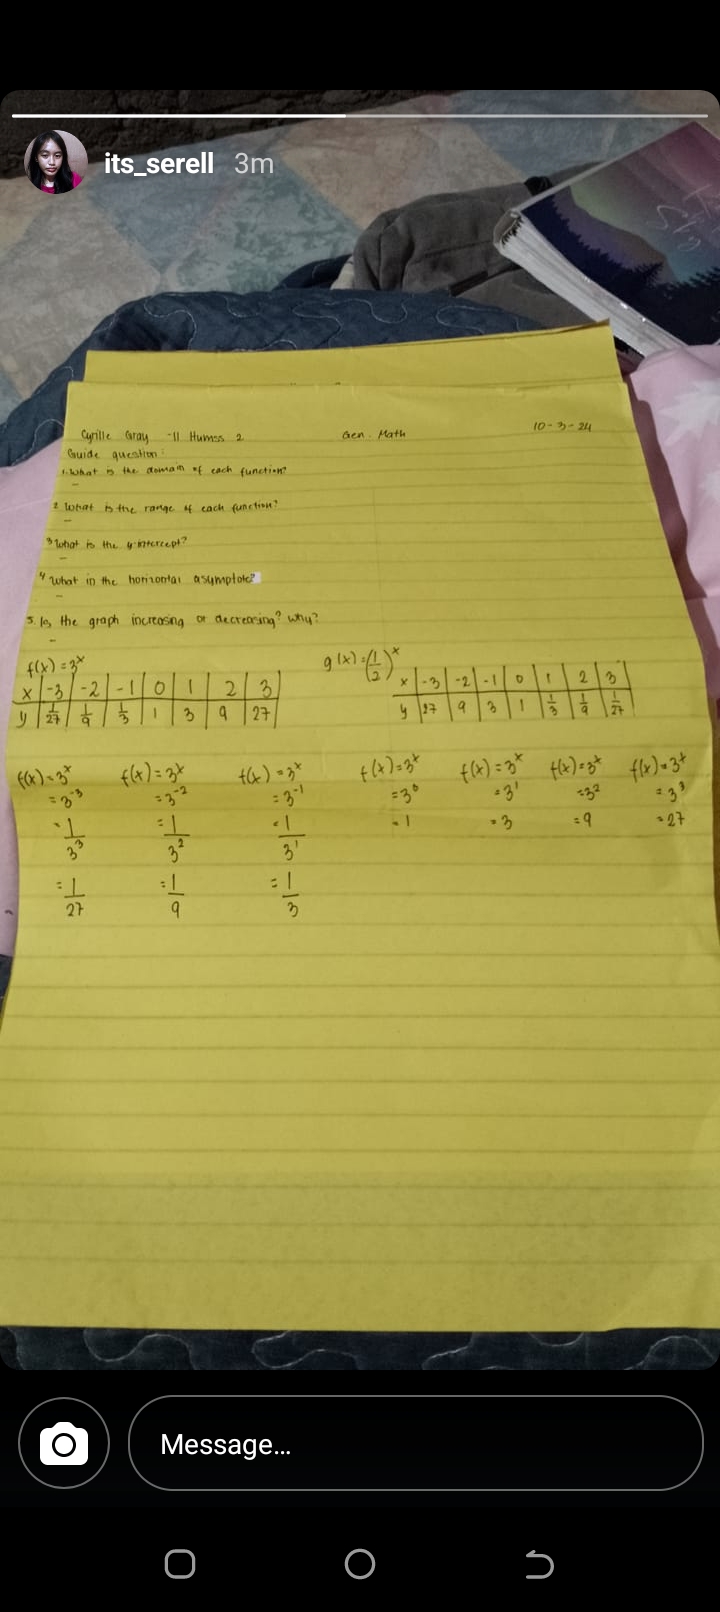 its_serell 3m
Cyrille Gray -11 Humss 2 Gen. Math 10-3-24
Guide question:
1. What is the domain of each function?
-
2 What is the range of each function?
-
3 What is the y-intercept?
-
4 What in the horizontal asymptote?
-
5. Is the graph increasing or decreasing? why?
-
f(x) = 3^x
x | -3 | -2 | -1 | 0 | 1 | 2 | 3
y | 1/27 | 1/9 | 1/3 | 1 | 3 | 9 | 27
g(x) = (1/2)^x
x | -3 | -2 | -1 | 0 | 1 | 2 | 3
y | 27 | 9 | 3 | 1 | 1/3 | 1/9 | 1/27
f(x) = 3^x f(x) = 3^x f(x) = 3^x f(x) = 3^x f(x) = 3^x f(x) = 3^x f(x) = 3^x
= 3^-3 = 3^-2 = 3^-1 = 3^0 = 3^1 = 3^2 = 3^3
= 1/3^3 = 1/3^2 = 1/3^1 = 1 = 3 = 9 = 27
= 1/27 = 1/9 = 1/3
Message...